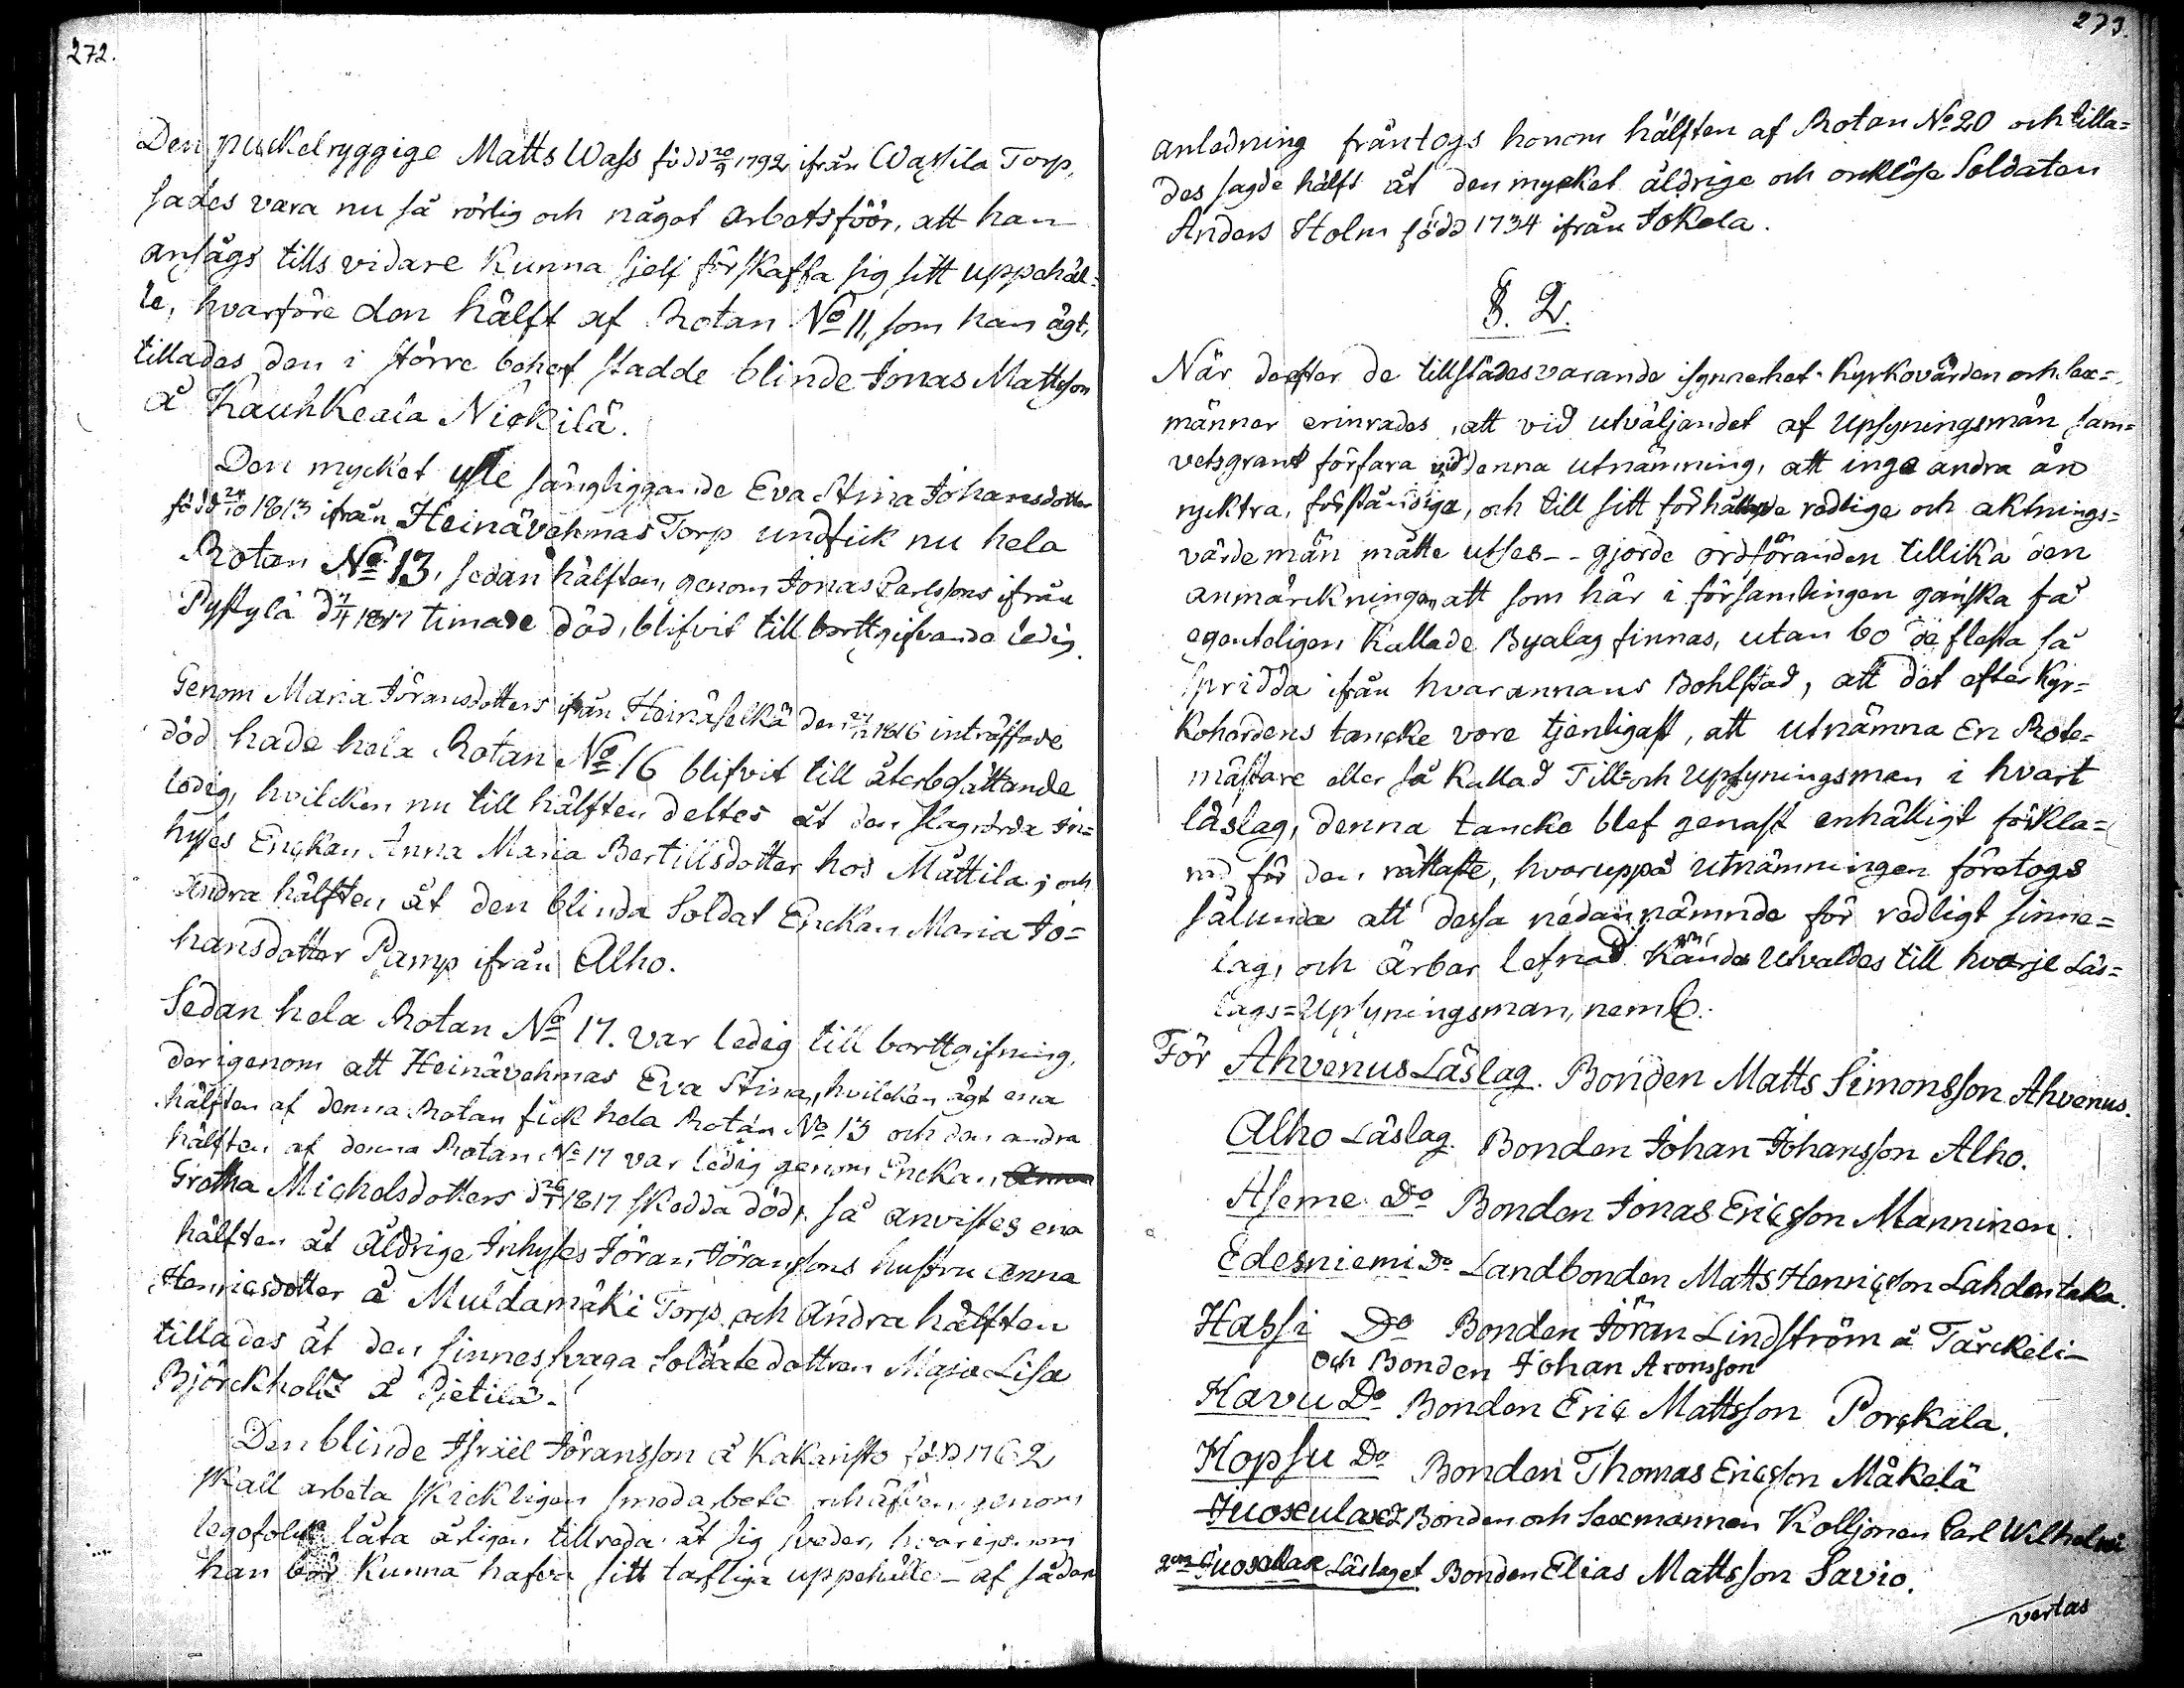 272.
Den puckelryggige Matts Wass född 20/9 1792 ifrån Wassila Torp,
sades vara nu så rörlig och något arbetsföör, att han
ansågs tills vidare kunna sjelf förskaffa sig sitt uppehäl=
le, hvarföre den hälft af Rotan No 11, som han ägt,
tillades den i större behof stadde blinde Jonas Mattsson
å Kauhkeala Nickilä.
Den mycket usle sängliggande Eva Stina Johansdotter
född 24/10 1813 ifrån Heinävehmas Torp undfick nu hela
Rotan No 13, sedan hälften, genom Jonas Carlssons ifrån
Pyssylä d 4/1 1817 timade död, blifvit till borttgifvande ledig.
Genom Maria Jöransdotters ifrån Heinäselkä den 24/12 1816 inträffade
död hade hela Rotan No 16 blifvit till återbesättande
ledig, hvilcken nu till hälften deltes åt den slagrörda in=
hyses Enckan Anna Maria Bertillsdotter hos Mattila; och
andra hälften åt den blinda Soldat Enckan Maria Jo=
hansdotter Pamp ifrån Alho.
Sedan hela Rotan No 17. var ledig till borttgifning,
derigenom att Heinävehmas Eva Stina, hvilcken ägt ena
hälften af denna Rotan fick hela Rotan No 13 och den andra
hälften af denna Rotan No 17 var ledig genom Enckan Anna
Gretha Michelsdotters d 26/1 1817 skedda död, så anvistes ena
hälften åt åldrige Inhyses Jöran Jöranssons hustru Anna
Henricsdotter å Muldamäki Torp och andra hälften
tillades åt den sinnessvaga Soldatedottren Maja Lisa
Björckholtz å Pietilä.
Den blinde Isräel Jöransson å Kakaristo född 1762
skall arbeta skickligen smedarbete och äfven genom
legofolk låta årligen tillreda åt sig sveder, hvarigenom
han bör kunna hafva sitt tarfliga uppehälle – af sådan
273.
anledning fråntogs honom hälften af Rotan No 20 och tilla=
des sagde hälft åt den mycket åldrige och orcklöse Soldaten
Anders Holm född 1734 ifrån Jokela.
§. 2.
När derefter de tillstädesvarande isynnerhet Kyrkovärden och Sex=
männer erinrades, att vid utväljandet af Upsyningsmän sam=
vetsgrant förfara vid denna utnämning, att inga andra än
nycktra, förståndiga, och till sitt förhållande redlige och aktnings=
värde män måtte utses -- gjorde ordföranden tillika den
anmärckningen, att som här i församlingen ganska få
egenteligen kallade Byalag finnas, utan bo de flesta så
spridda ifrån hvarannans Bohlstad, att det efter Kyr=
koherdens tancke vore tjenligast, att utnämna En Rote=
mästare eller så kallad Till= och Upsyningsman i hvart
läslag, denna tancke blef genast enhälligt förkla=
rad för den rättaste, hvaruppå utnämningen företogs
sålunda att dessa nedannämnde för redligt sinne=
lag, och ärbar lefnad kände utvaldes till hvarje Läs=
lags=Upsyningsman, neml.
För Ahvenus Läslag. Bonden Matts Simonsson Ahvenus.
Alho Läslag. Bonden Johan Johansson Alho.
Aseme Do Bonden Jonas Ericsson Manninen.
Edesniemi Do Landbonden Matts Henricsson Lahdentaka.
Hassi Do Bonden Jöran Lindström å Tärckeli–
och Bonden Johan Aronsson
Kavu Do Bonden Eric Mattsson Porckala.
Kopsu Do Bonden Thomas Ericsson Mäkelä
Juoxula Bonden och Sexmannen Kolljonen Carl Wilhelm
2dra Juoxula Läslaget Bonden Elias Mattsson Savio.
vertas